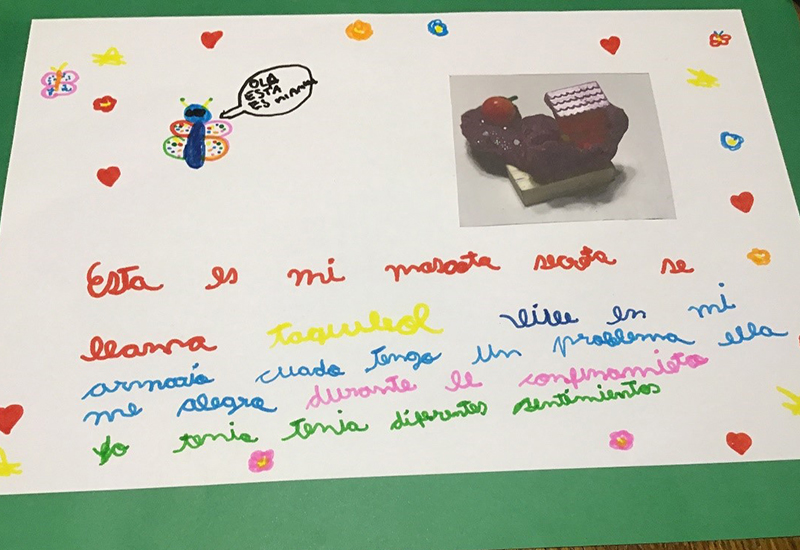 OLA
ESTA
ES
Esta es mi mascota secreta se
llama vive en mi
armario cuado tengo un problema ella
me alegra durante le confinamieto
Yo tenia tenia diferentes sentimientos